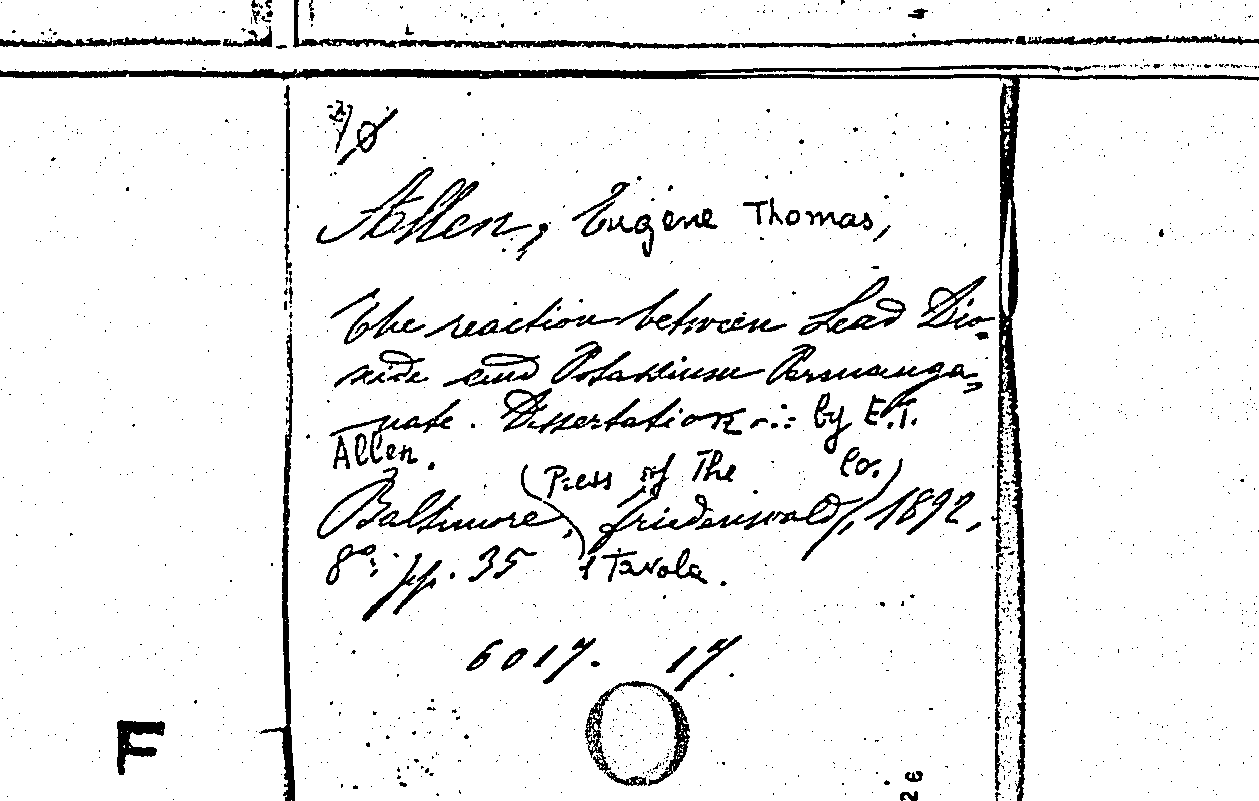 Allen, Eugene Thomas,
The reaction between Lead Dio-
xide and Potassium Permanga-
nate. Dissertation ... by E.T.
Allen.
(Press of The Co.)
Baltimore, Friedenwald, 1892,
8°; pp. 35 1 Tavola.
6017. 17.
F
26